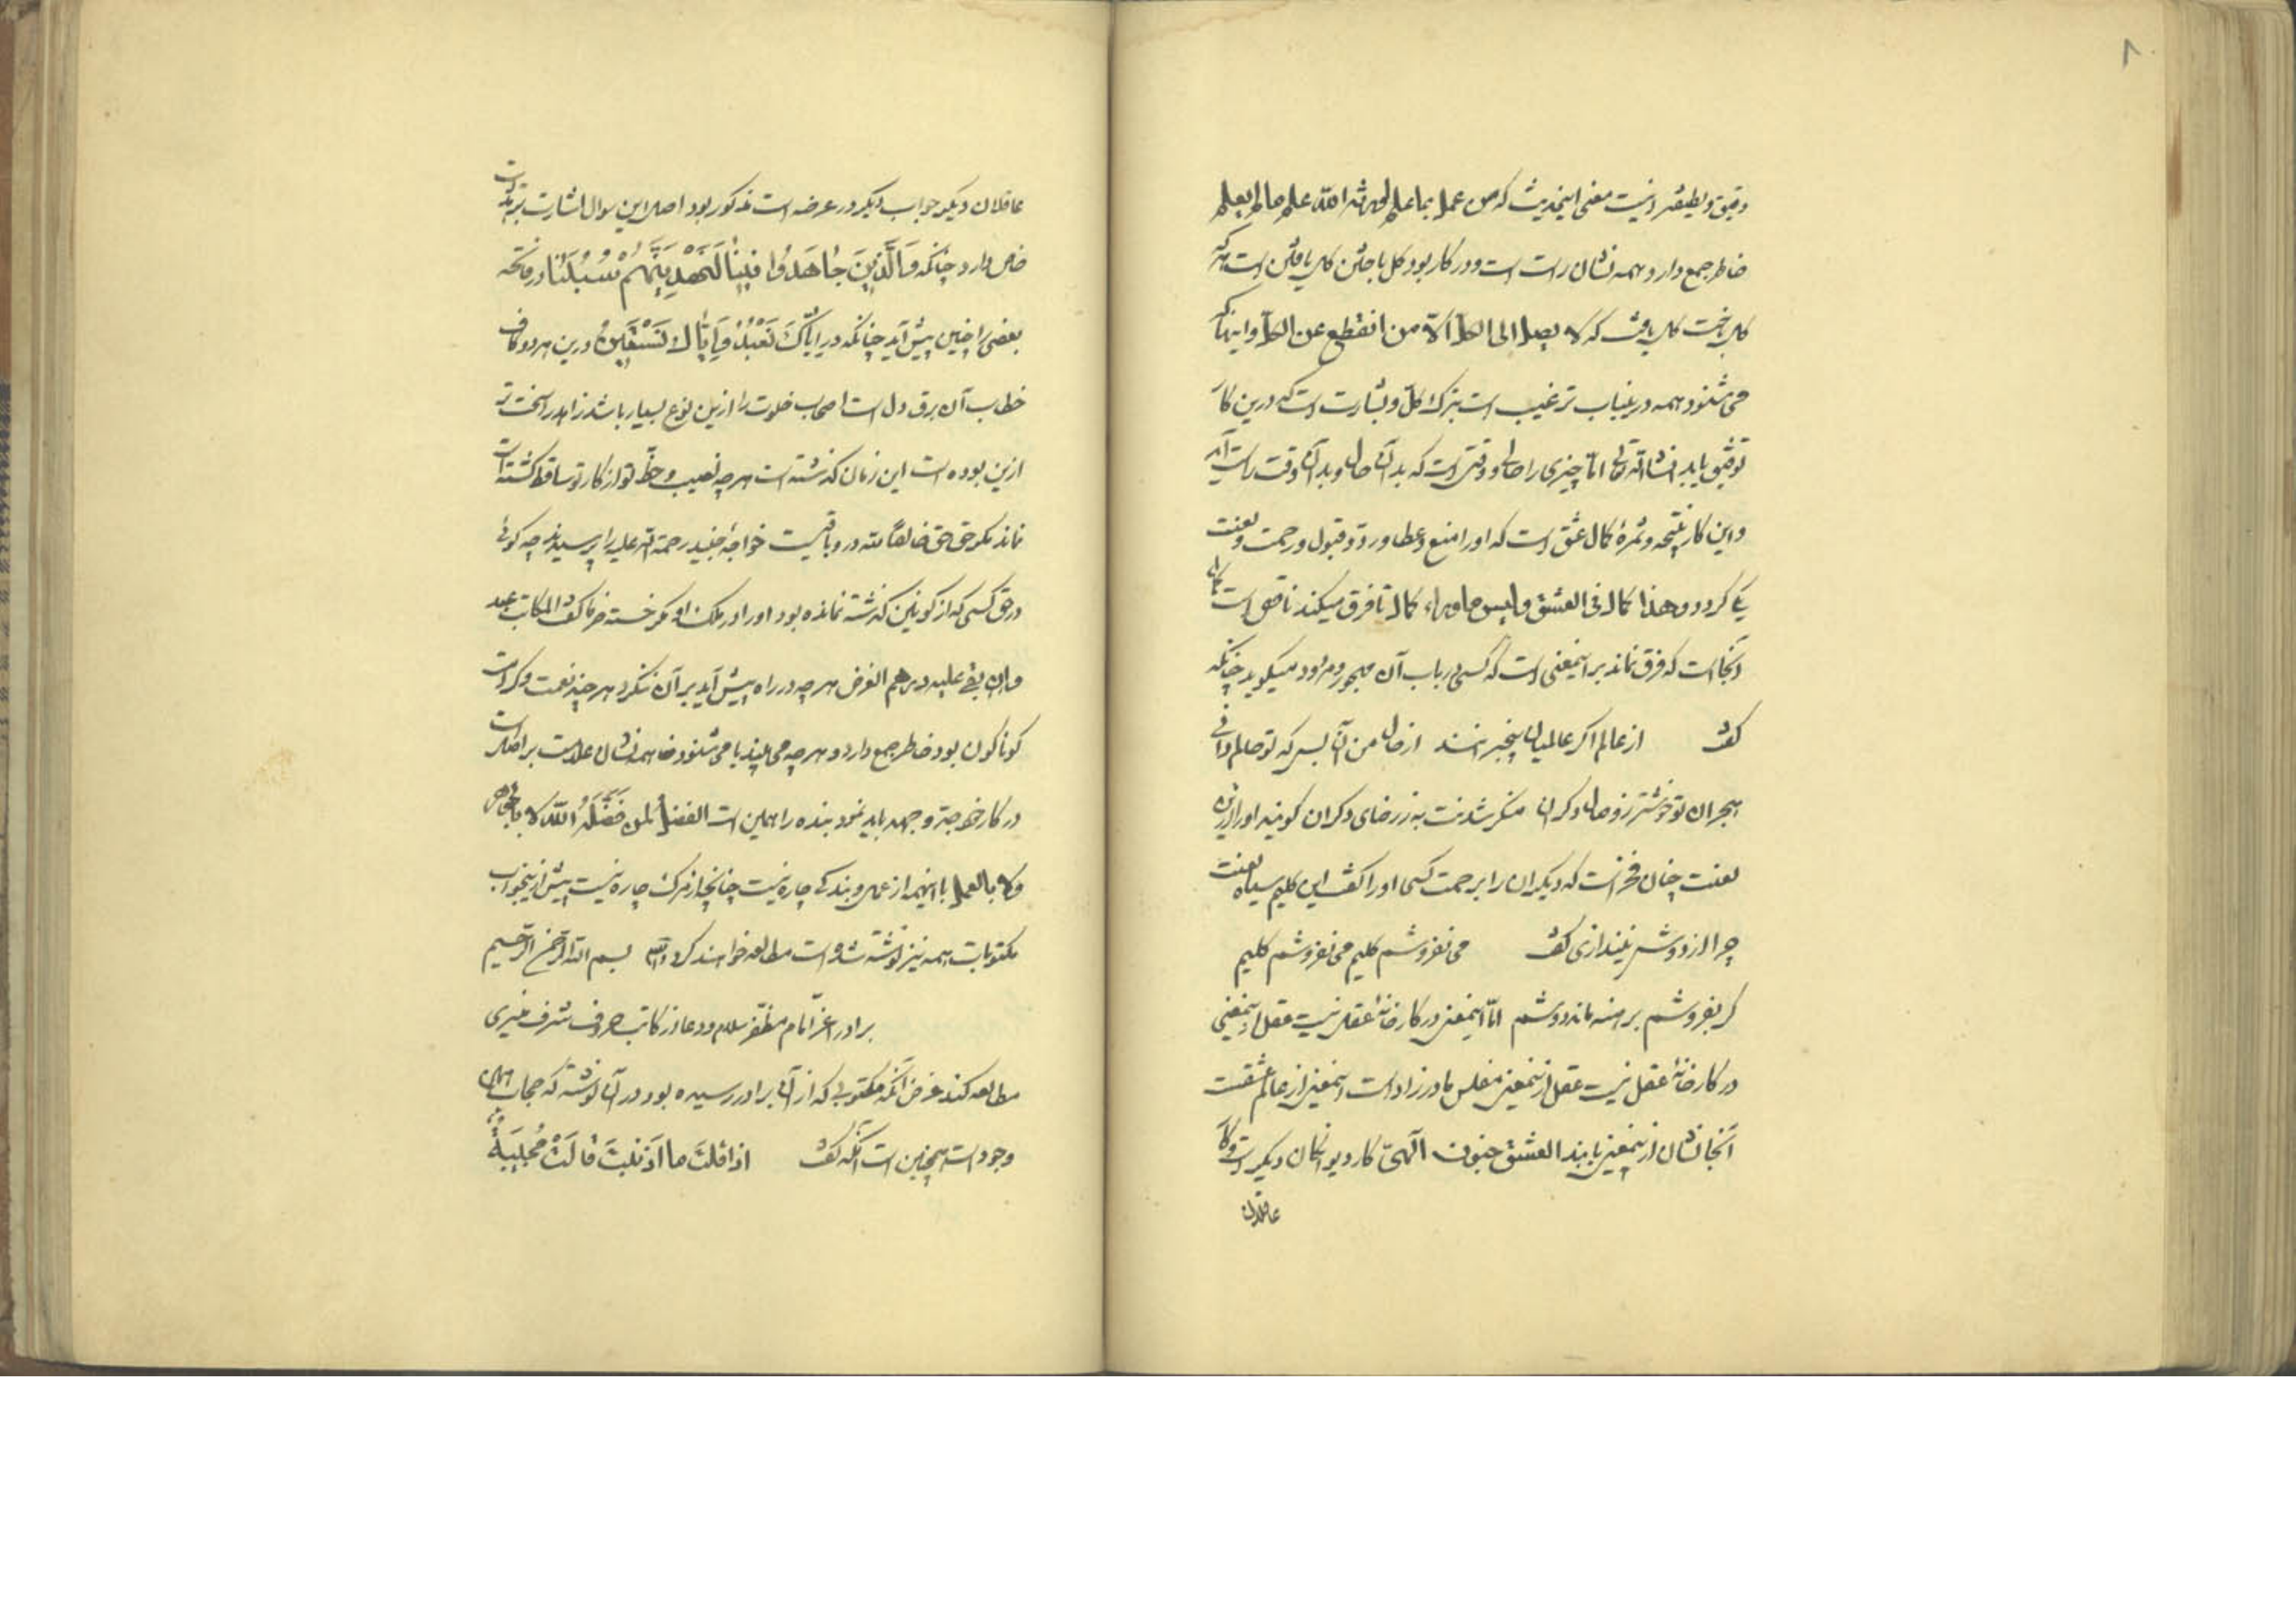 ۸
دقیق و لطیفه و نیست معنی اینحدیث که من عمل بما علم اورثه الله علم ما لم یعلم
خاطر جمع دارد همه نشان راست است و در کار بود کل باختن کل یافتن است هر که
کل باخت کل یافت که لا یصل الی الکل الا من انقطع عن الکل و اینها که
می شنود همه درینباب ترغیب است بترک کل و بشارت است که درین کار
توفیق یابد انشاالله تعالی اما چیزی را حالی و وقتی است که بدان حال و بدان وقت راست آید
و این کار نتیجه و ثمرهٔ کمال عشق است که او را منع و عطا و رد و قبول و رحمت و لعنت
یکی گردد و هذا کمال فی العشق و لیس ما وراء کمال تا فرق میکند ناقص است
آنجا است که فرق نماند بر اینمعنی است که کسی در باب آن مهجور و مردود میگوید چنانکه
گفت از عالم اگر عالمیان بیخبر انند از حال من آن بس که تو حالم دانی
هجران تو خوشتر ز وصال دگران منکر شدنت به ز رضای دگران گویند او را ازین
لعنت چنان فخر است که دیگران را برحمت کسی او را گفت این گلیم سیاه لعنت
چرا از دوش نیندازی گفت می نفروشم گلیم می نفروشم گلیم
گر بفروشم برهنه ماند دوشم اما اینمعنی در کارخانهٔ عقل نیست عقل ازینمعنی
در کارخانهٔ عقل نیست عقل ازینمعنی مفلس مادرزاد است اینمعنی از عالم عشقست
آنجا نشان ازینمعنی یابند العشق جنون آلهی کار دیوانگان دیگر است و کار
عاقلان
عاقلان دیگر جواب دیگر در عرضه است مذکور بود اصل این سوال اشارت
خاص دارد چنانکه وَالَّذِینَ جَاهَدُوا فِینَا لَنَهْدِیَنَّهُمْ سُبُلَنَا در فاتحه
بعضی را چنین پیش آید چنانکه در ایاک نعبد و ایاک نستعین درین هر دو کاف
خطاب آن برق دل است اصحاب خلوت را ازین نوع بسیار باشد زاهد را سخت تر
ازین بوده است این زمان گذشته است هر چه نصیب و حظ تو از کار تو ساقط گشته است
نماند مگر حق حق خالصاً لله در و باقیست خواجه جنید رحمة الله علیه را پرسیدند چه گوئی
در حق کسی که از کونین گذشته نمانده بود او را در ملک او مگر خسته خرما گفت المکاتب عبد
و ان بقی علیه درهم الغرض هر چه در راه پیش آید بر آن ننگرد هر چند نعمت و کرامت
گوناگون بود خاطر جمع دارد و هر چه می بیند یا می شنود همه نشان علامت بر اصل است
در کار خود جد و جهد باید نمود بنده را همین است الفضل لمن فَضَّلَهُ الله لا
و لا بالعمل با اینهمه از عمل و بندگی چاره نیست چنانچه از مرگ چاره نیست پیش ازینجواب
مکتوبات همه نیز نوشته شده است مطالعه خواهند کرد بسم الله الرحمن الرحیم
برادر اعز امام مظفر سلام و دعا از کاتب حروف شرف منیری
مطالعه کند غرض آنکه مکتوبی که از آن برادر رسیده بود در آن نوشته که حجاب
وجود است همچنین است آنکه گفت اذا قلتَ ما اذنبت قالَتْ مُجِیبَةً